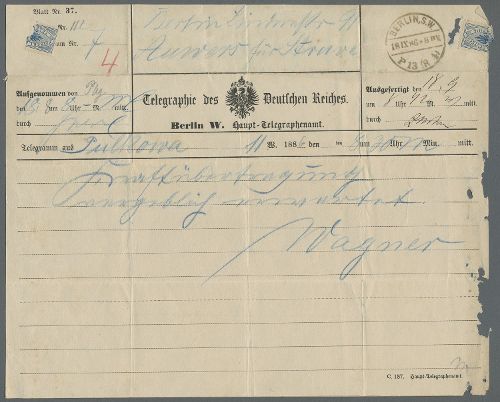 Blatt Nr. 37.
Nr. 111
zum Nr. 7
4
Berlin Lindenstr 91
Auwers für Struve
BERLIN, S.W.
P 13 (R 4)
Aufgenommen von
den Uhr M. mitt.
durch
Telegraphie des Deutschen Reiches.
Berlin W. Haupt-Telegraphenamt.
Ausgefertigt den 18. 9
um 8 Uhr M. mitt.
durch
Telegramm aus Pulkowa 11 W. 1886 den um Uhr Min. mitt.
Kraftübertragung
vergeblich erwartet.
Wagner
C. 187. Haupt-Telegraphenamt.